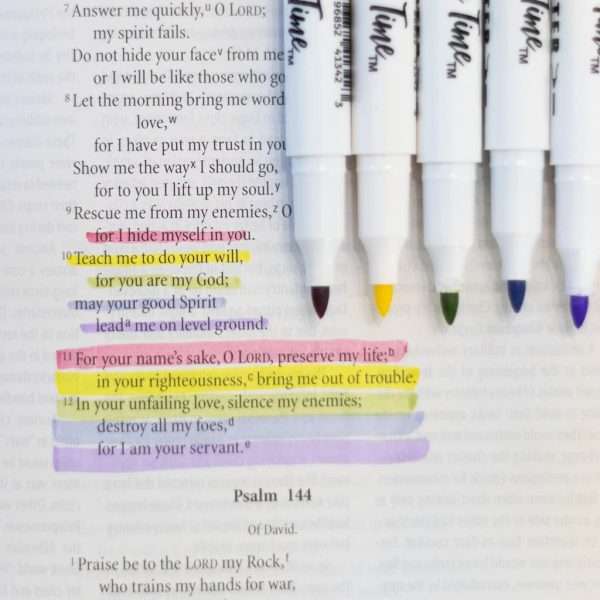 ⁷ Answer me quickly,ᵘ O LORD;
my spirit fails.
Do not hide your faceᵛ from me
or I will be like those who go
⁸ Let the morning bring me word
love,ʷ
for I have put my trust in you
Show me the wayˣ I should go,
for to you I lift up my soul.ʸ
⁹ Rescue me from my enemies,ᶻ O
for I hide myself in you.
¹⁰ Teach me to do your will,
for you are my God;
may your good Spirit
leadᵃ me on level ground.
¹¹ For your name's sake, O LORD, preserve my life;ᵇ
in your righteousness,ᶜ bring me out of trouble.
¹² In your unfailing love, silence my enemies;
destroy all my foes,ᵈ
for I am your servant.ᵉ
Psalm 144
Of David.
¹ Praise be to the LORD my Rock,ᶠ
who trains my hands for war,
Time™
96852 41342 5
Time™
Time™